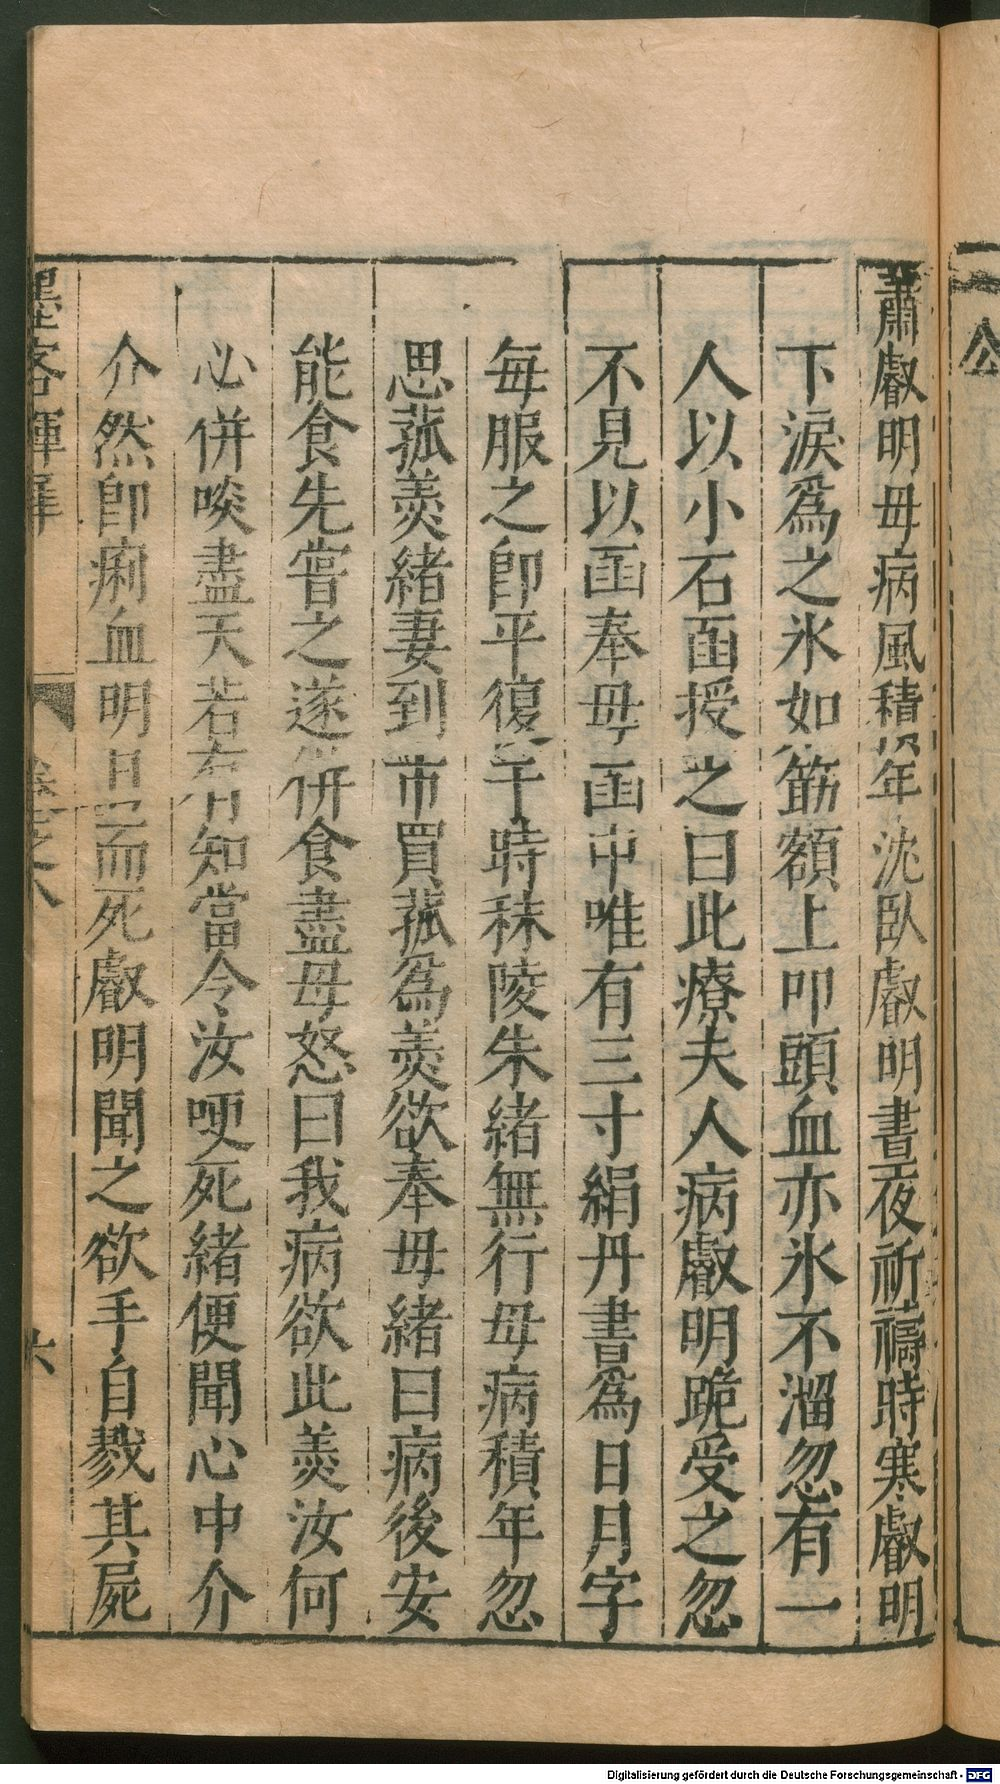 公
蕭叡明母病風積年沈臥叡明晝夜祈禱時寒叡明
下淚爲之氷如筯額上叩頭血亦氷不溜忽有一
人以小石函授之曰此療夫人病叡明跪受之忽
不見以函奉母函中唯有三寸絹丹書爲日月字
毎服之卽平復于時秣陵朱緒無行母病積年忽
思菰羹緒妻到市買菰爲羹欲奉母緒曰病後安
能食先嘗之遂併食盡母怒曰我病欲此羹汝何
心併啖盡天若有知當令汝哽死緒便聞心中介
介然卽痢血明日而死叡明聞之欲手自戮其屍
卷之八
六
Digitalisierung gefördert durch die Deutsche Forschungsgemeinschaft - DFG